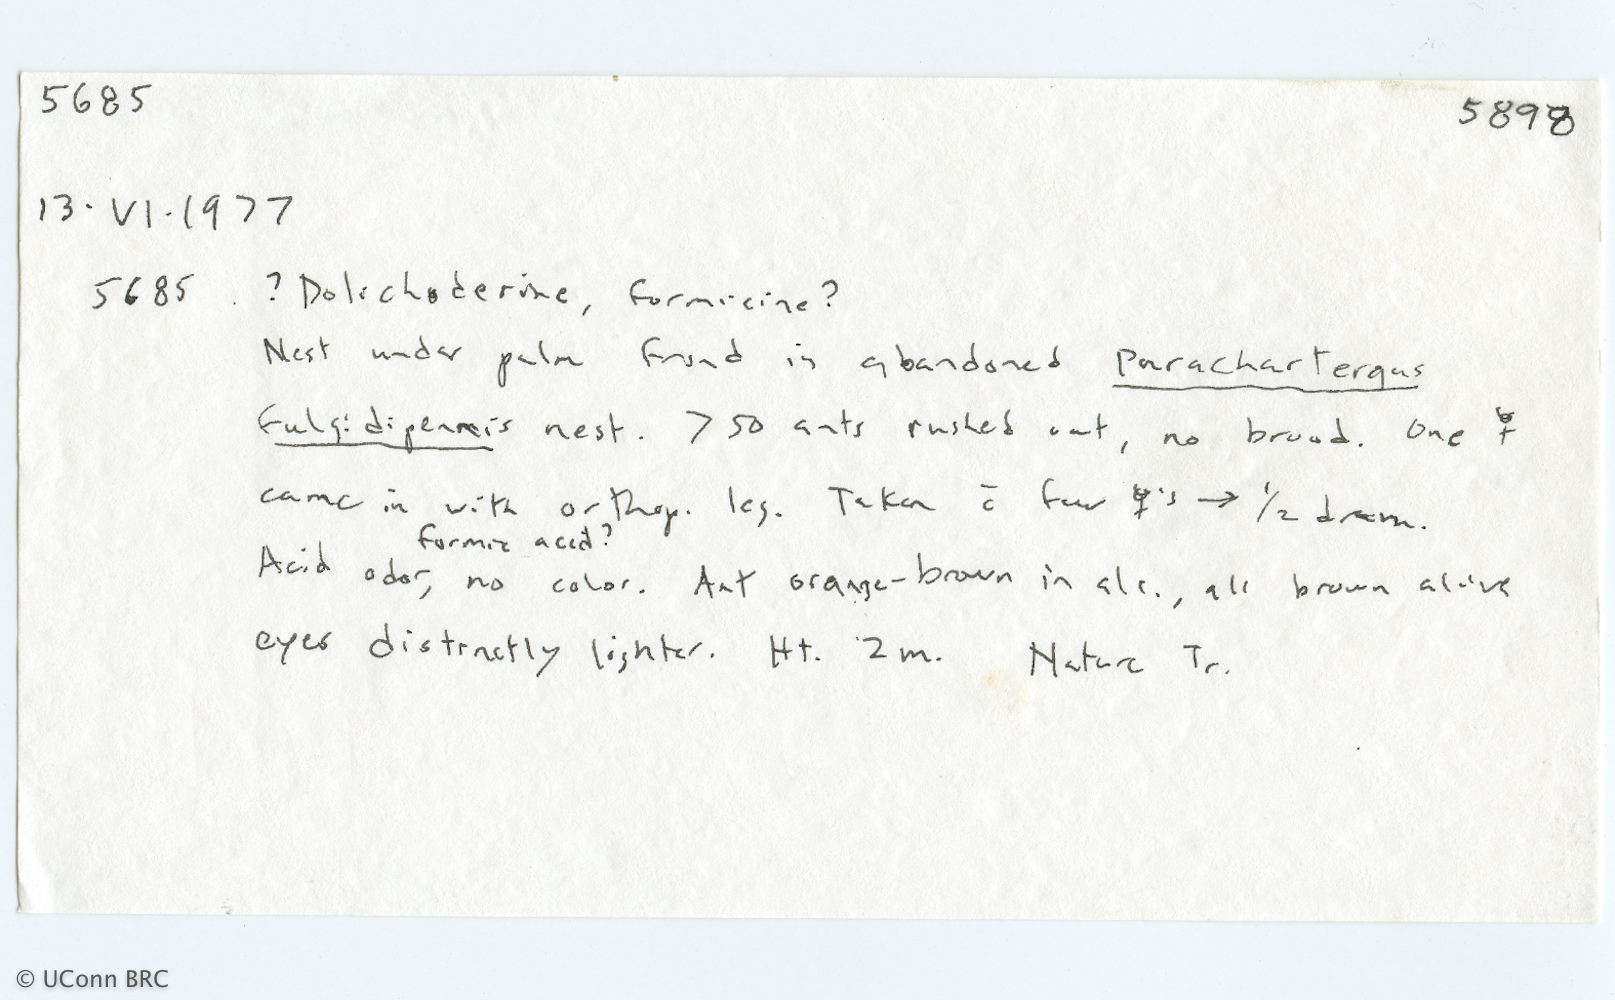 5685 5898
13·VI·1977
5685 ?Dolichoderine, formicine?
Nest under palm frond in abandoned Parachartergus
fulgidipennis nest. >50 ants rushed out, no brood. One ☿
came in with orthop. leg. Taken c̄ few ☿'s → 1/2 dram.
formic acid?
Acid odor, no color. Ant orange-brown in alc., all brown alive
eyes distinctly lighter. Ht. 2m. Nature Tr.
© UConn BRC